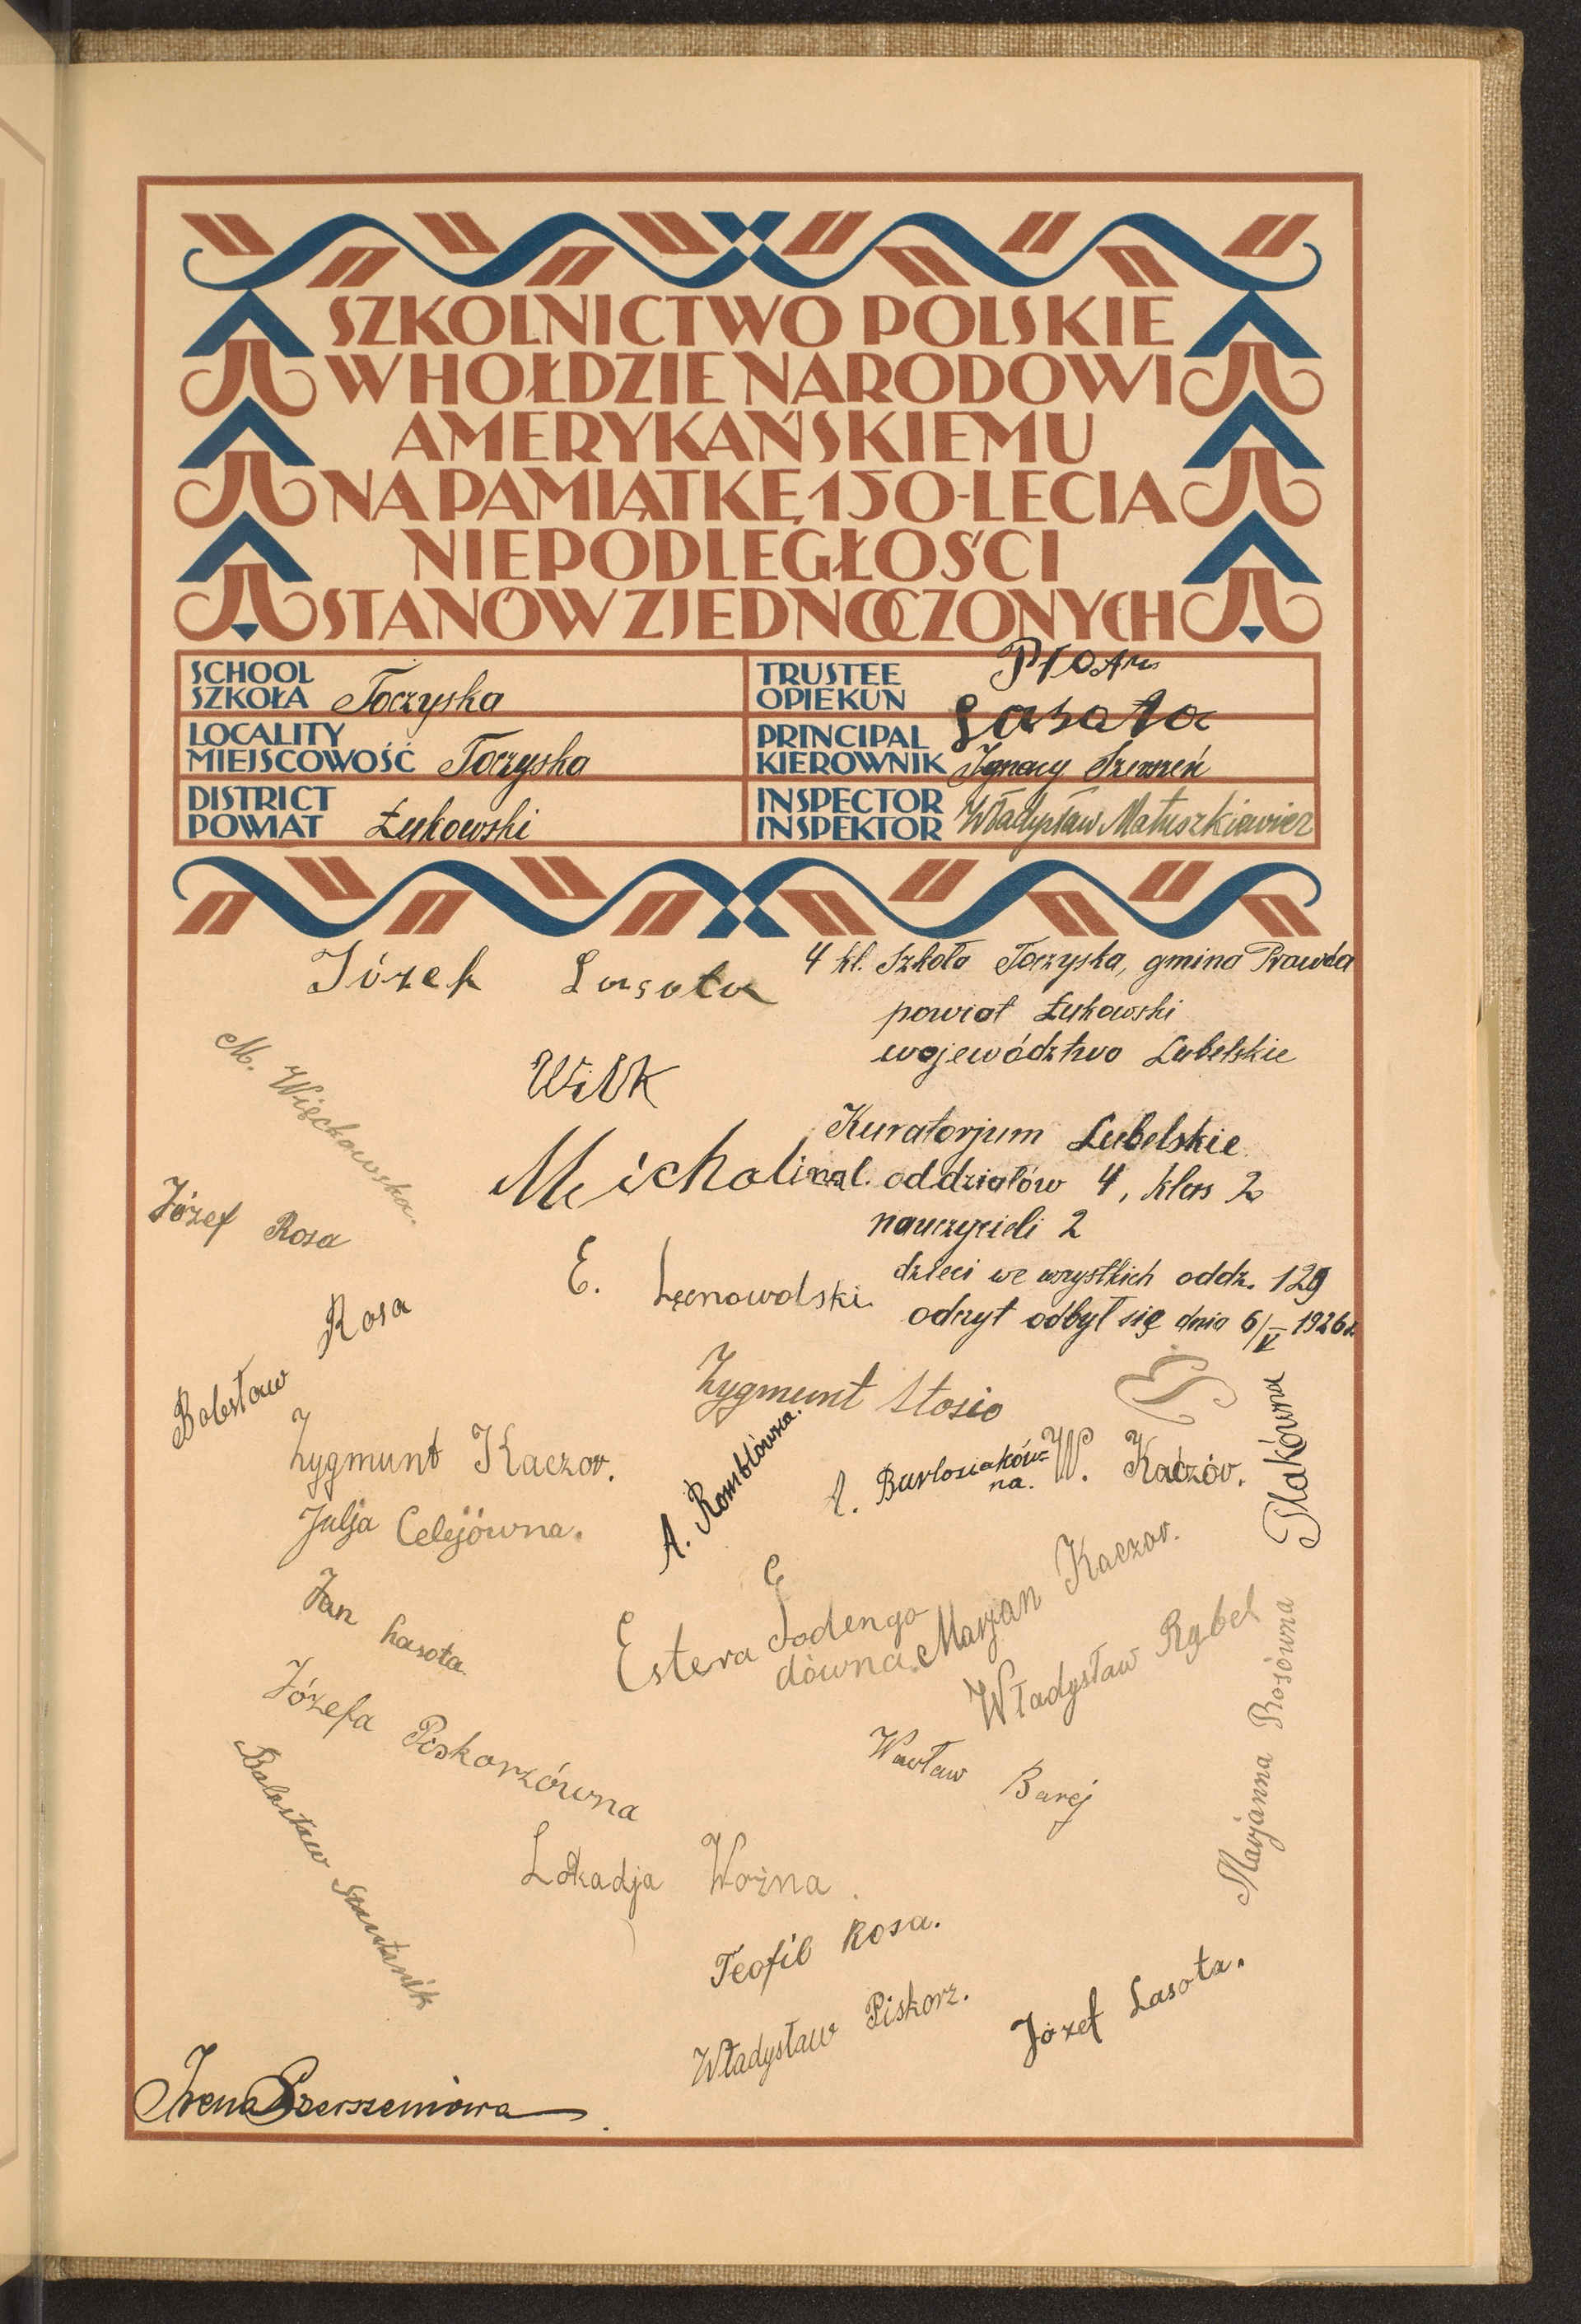 SZKOLNICTWO POLSKIE
W HOŁDZIE NARODOWI
AMERYKAŃSKIEMU
NA PAMIĄTKĘ 150-LECIA
NIEPODLEGŁOŚCI
STANÓW ZJEDNOCZONYCH
SCHOOL
SZKOŁA Toczyska
LOCALITY
MIEJSCOWOŚĆ Toczyska
DISTRICT
POWIAT Łukowski
TRUSTEE
OPIEKUN Piotr
Lasota
PRINCIPAL
KIEROWNIK Ignacy
INSPECTOR
INSPEKTOR Władysław Matuszkiewicz
4 kl. Szkoła Toczyska, gmina Prawda
powiat Łukowski
województwo Lubelskie
Kuratorjum Lubelskie
oddziałów 4, klas 2
nauczycieli 2
dzieci we wszystkich oddz. 129
odczyt odbył się dnia 6/V 1926 r.
Józef Lasota
M. Więckowska.
Wilk
Michalina
Józef Rosa
E.
Bolesław Rosa
Zygmunt Stosio
Zygmunt Kaczor.
A. Romblówna.
Burłosiaków=
na.
W. Kaczór.
Ptakówna
Julja Celejówna.
Jan Lasota.
Estera Jodengo
dówna.
Marjan Kaczor.
Władysław Rybel
Józefa Piskorzówna
Wacław Barej
Marjanna Rosówna
Bolesław
Lokadja Woźna.
Teofil Rosa.
Władysław Piskorz.
Józef Lasota.
Irena Szerszeniowa